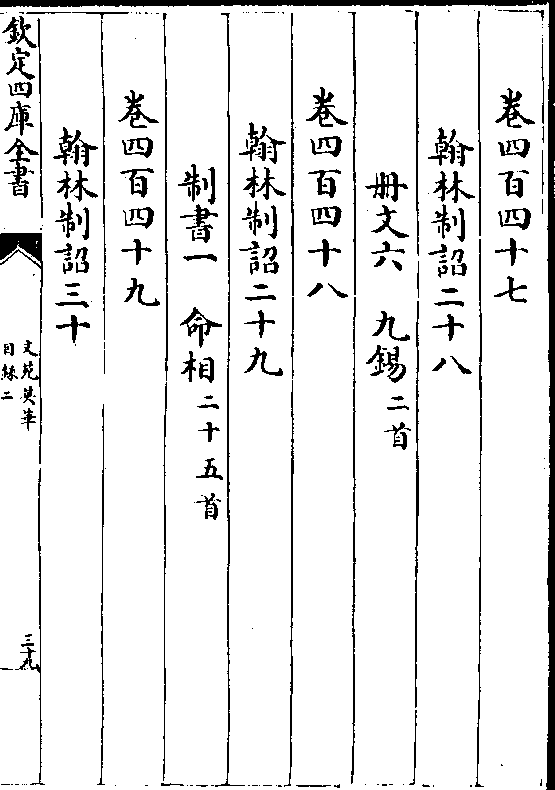 卷四百四十七
翰林制詔二十八
冊文六　九錫二首
卷四百四十八
翰林制詔二十九
制書一　命相二十五首
卷四百四十九
翰林制詔三十
欽定四庫全書
文苑英華
目錄二
三十九